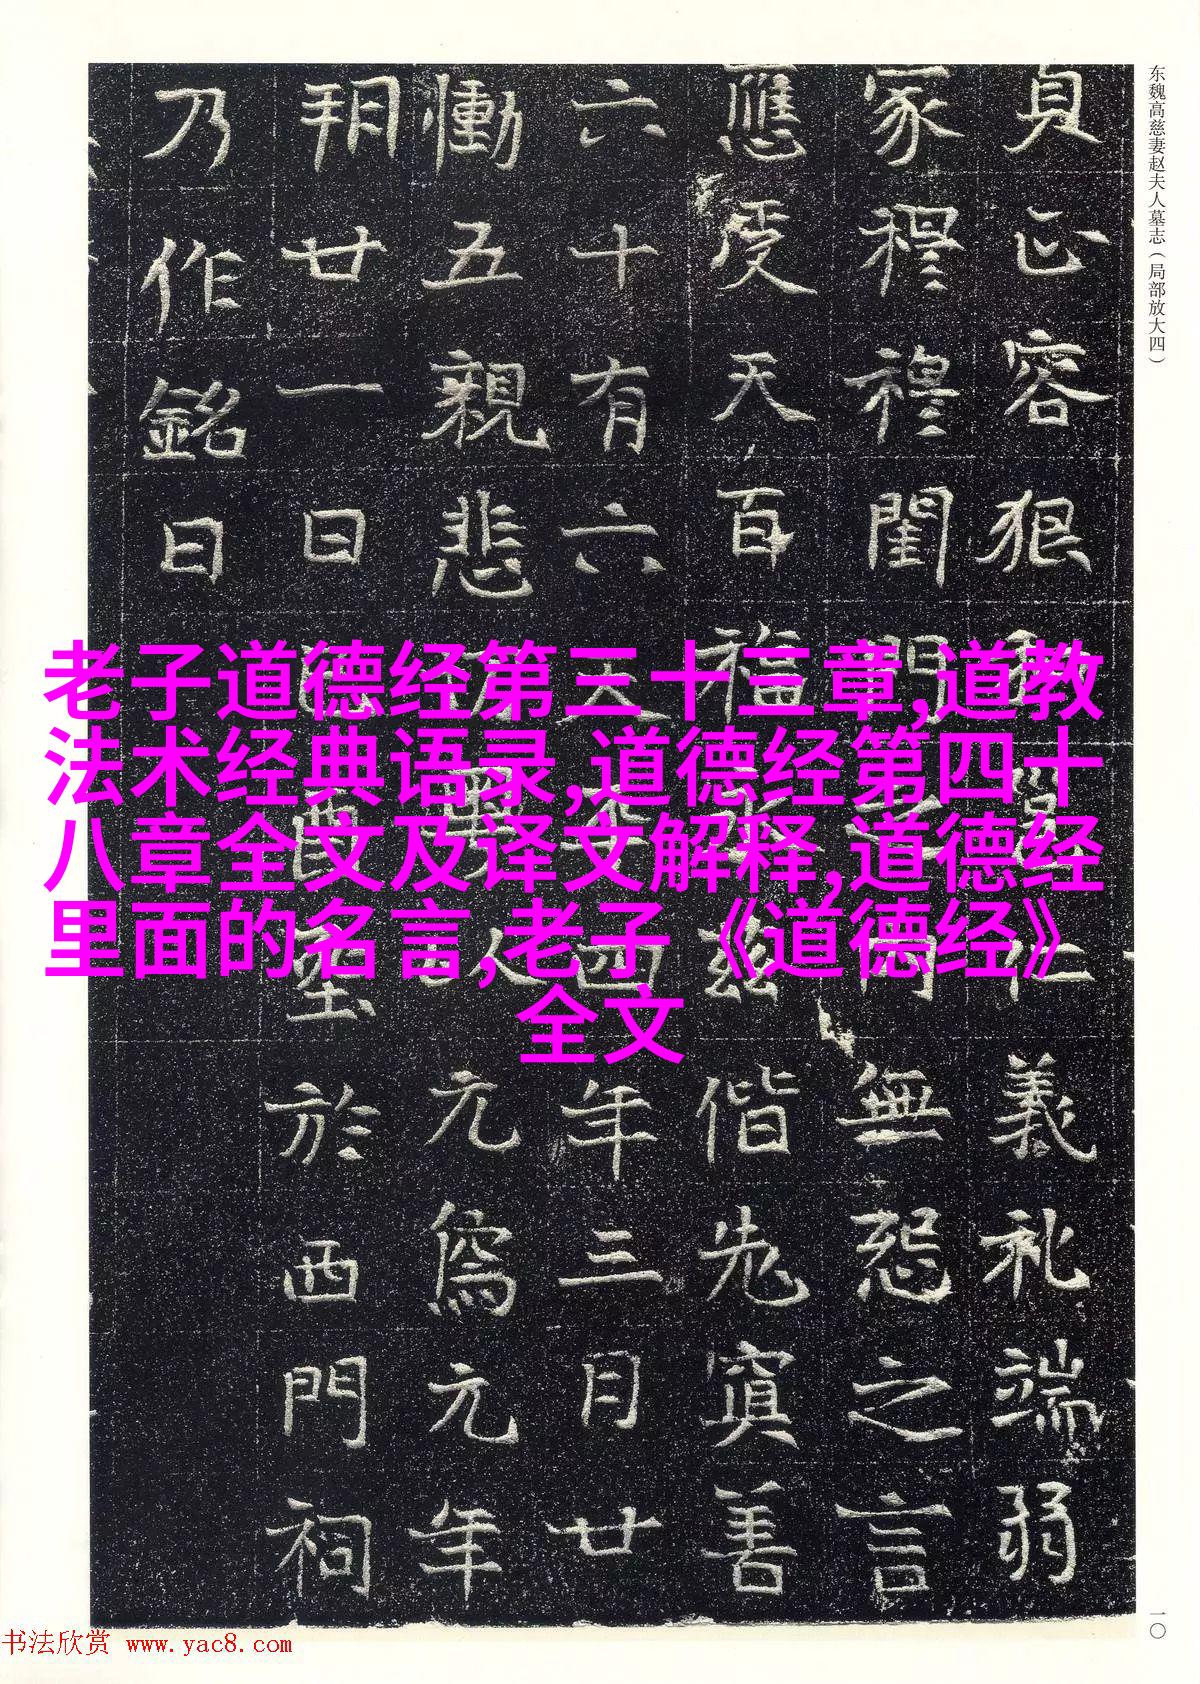 东魏高慈妻赵夫人墓志（局部放大四）
貞正容狠仁義礼端弱
家穆穆閨門無怨之言
應受天百福兹偕老寘善
六十有六天平四年三月廿
慟五親悲人元為元年
朔廿一日酉於西門祠
乃作銘曰
老子道德经第三十三章,道教
法术经典语录,道德经第四十
八章全文及译文解释,道德经
里面的名言,老子《道德经》
全文
一〇
书法欣赏 www.yac8.com